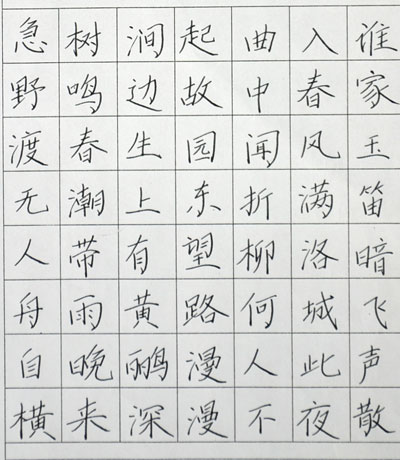 谁家玉笛暗飞声散
入春风满洛城此夜
曲中闻折柳何人不
起故园东望路漫漫
涧边生上有黄鹂深
树鸣春潮带雨晚来
急野渡无人舟自横